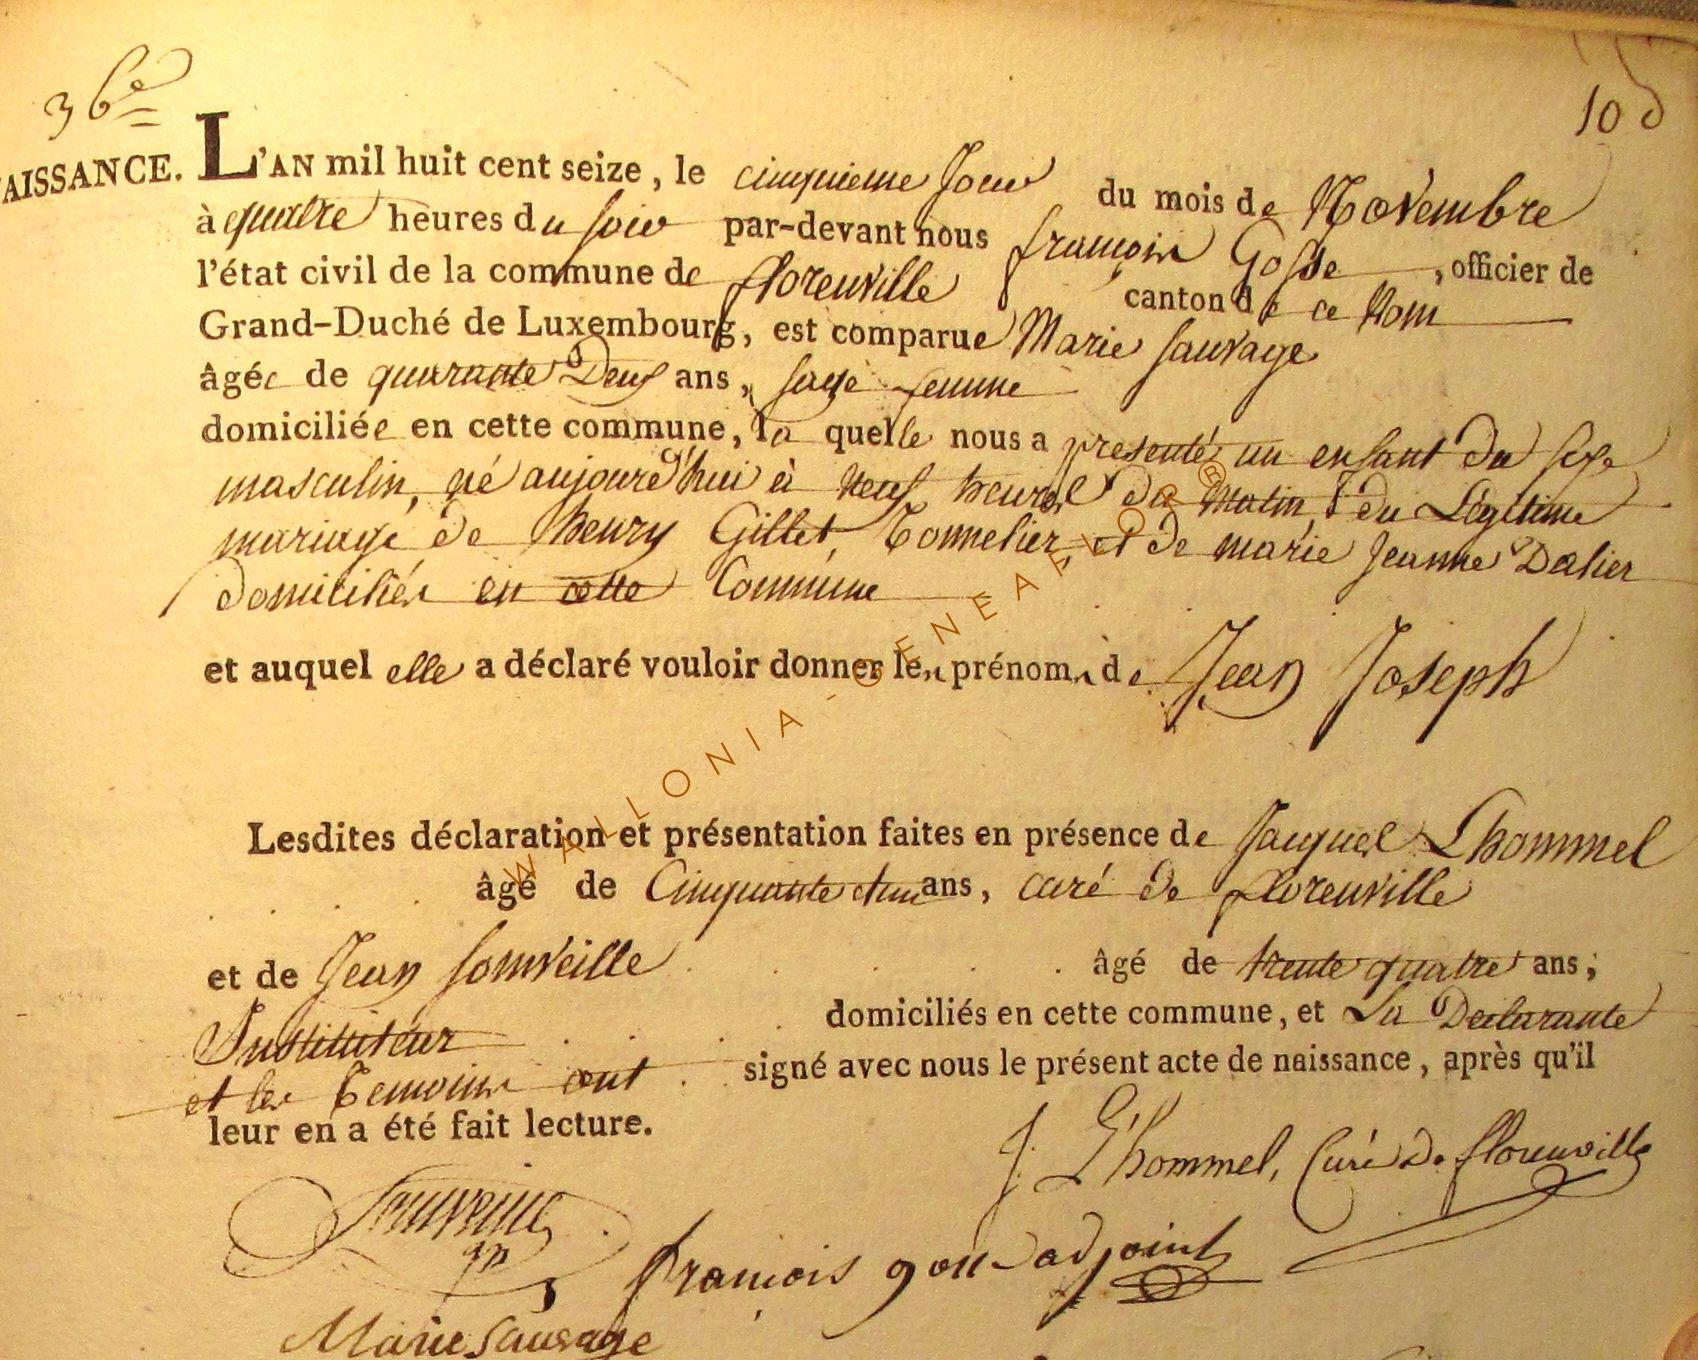 36e
10
AISSANCE. L'AN mil huit cent seize, le cinquieme Jour du mois de Novembre
à quatre heures du soir par-devant nous françois Gosse, officier de
l'état civil de la commune de florenville canton de ce Nom
Grand-Duché de Luxembourg, est comparue Marie Sauvage
âgée de quarante Deux ans, sage femme
domiciliée en cette commune, la quelle nous a presenté un enfant du sexe
masculin, né aujourd'hui à neuf heures du matin, du Légitime
mariage de henry Gillet, Tonnelier et de marie Jeanne Dalier
domiciliés en cette Commune
et auquel elle a déclaré vouloir donner les prénoms de Jean Joseph
Lesdites déclaration et présentation faites en présence de Jacques Lhommel
âgé de Cinquante et un ans, curé de florenville
et de Jean Somveille âgé de trente quatre ans;
Instituteur domiciliés en cette commune, et La Declarante
et les Temoins ont signé avec nous le présent acte de naissance, après qu'il
leur en a été fait lecture.
J. L'hommel, Curé de florenville
francois adjoint
Marie Sauvage
WALLONIA - GENEAFLOR®